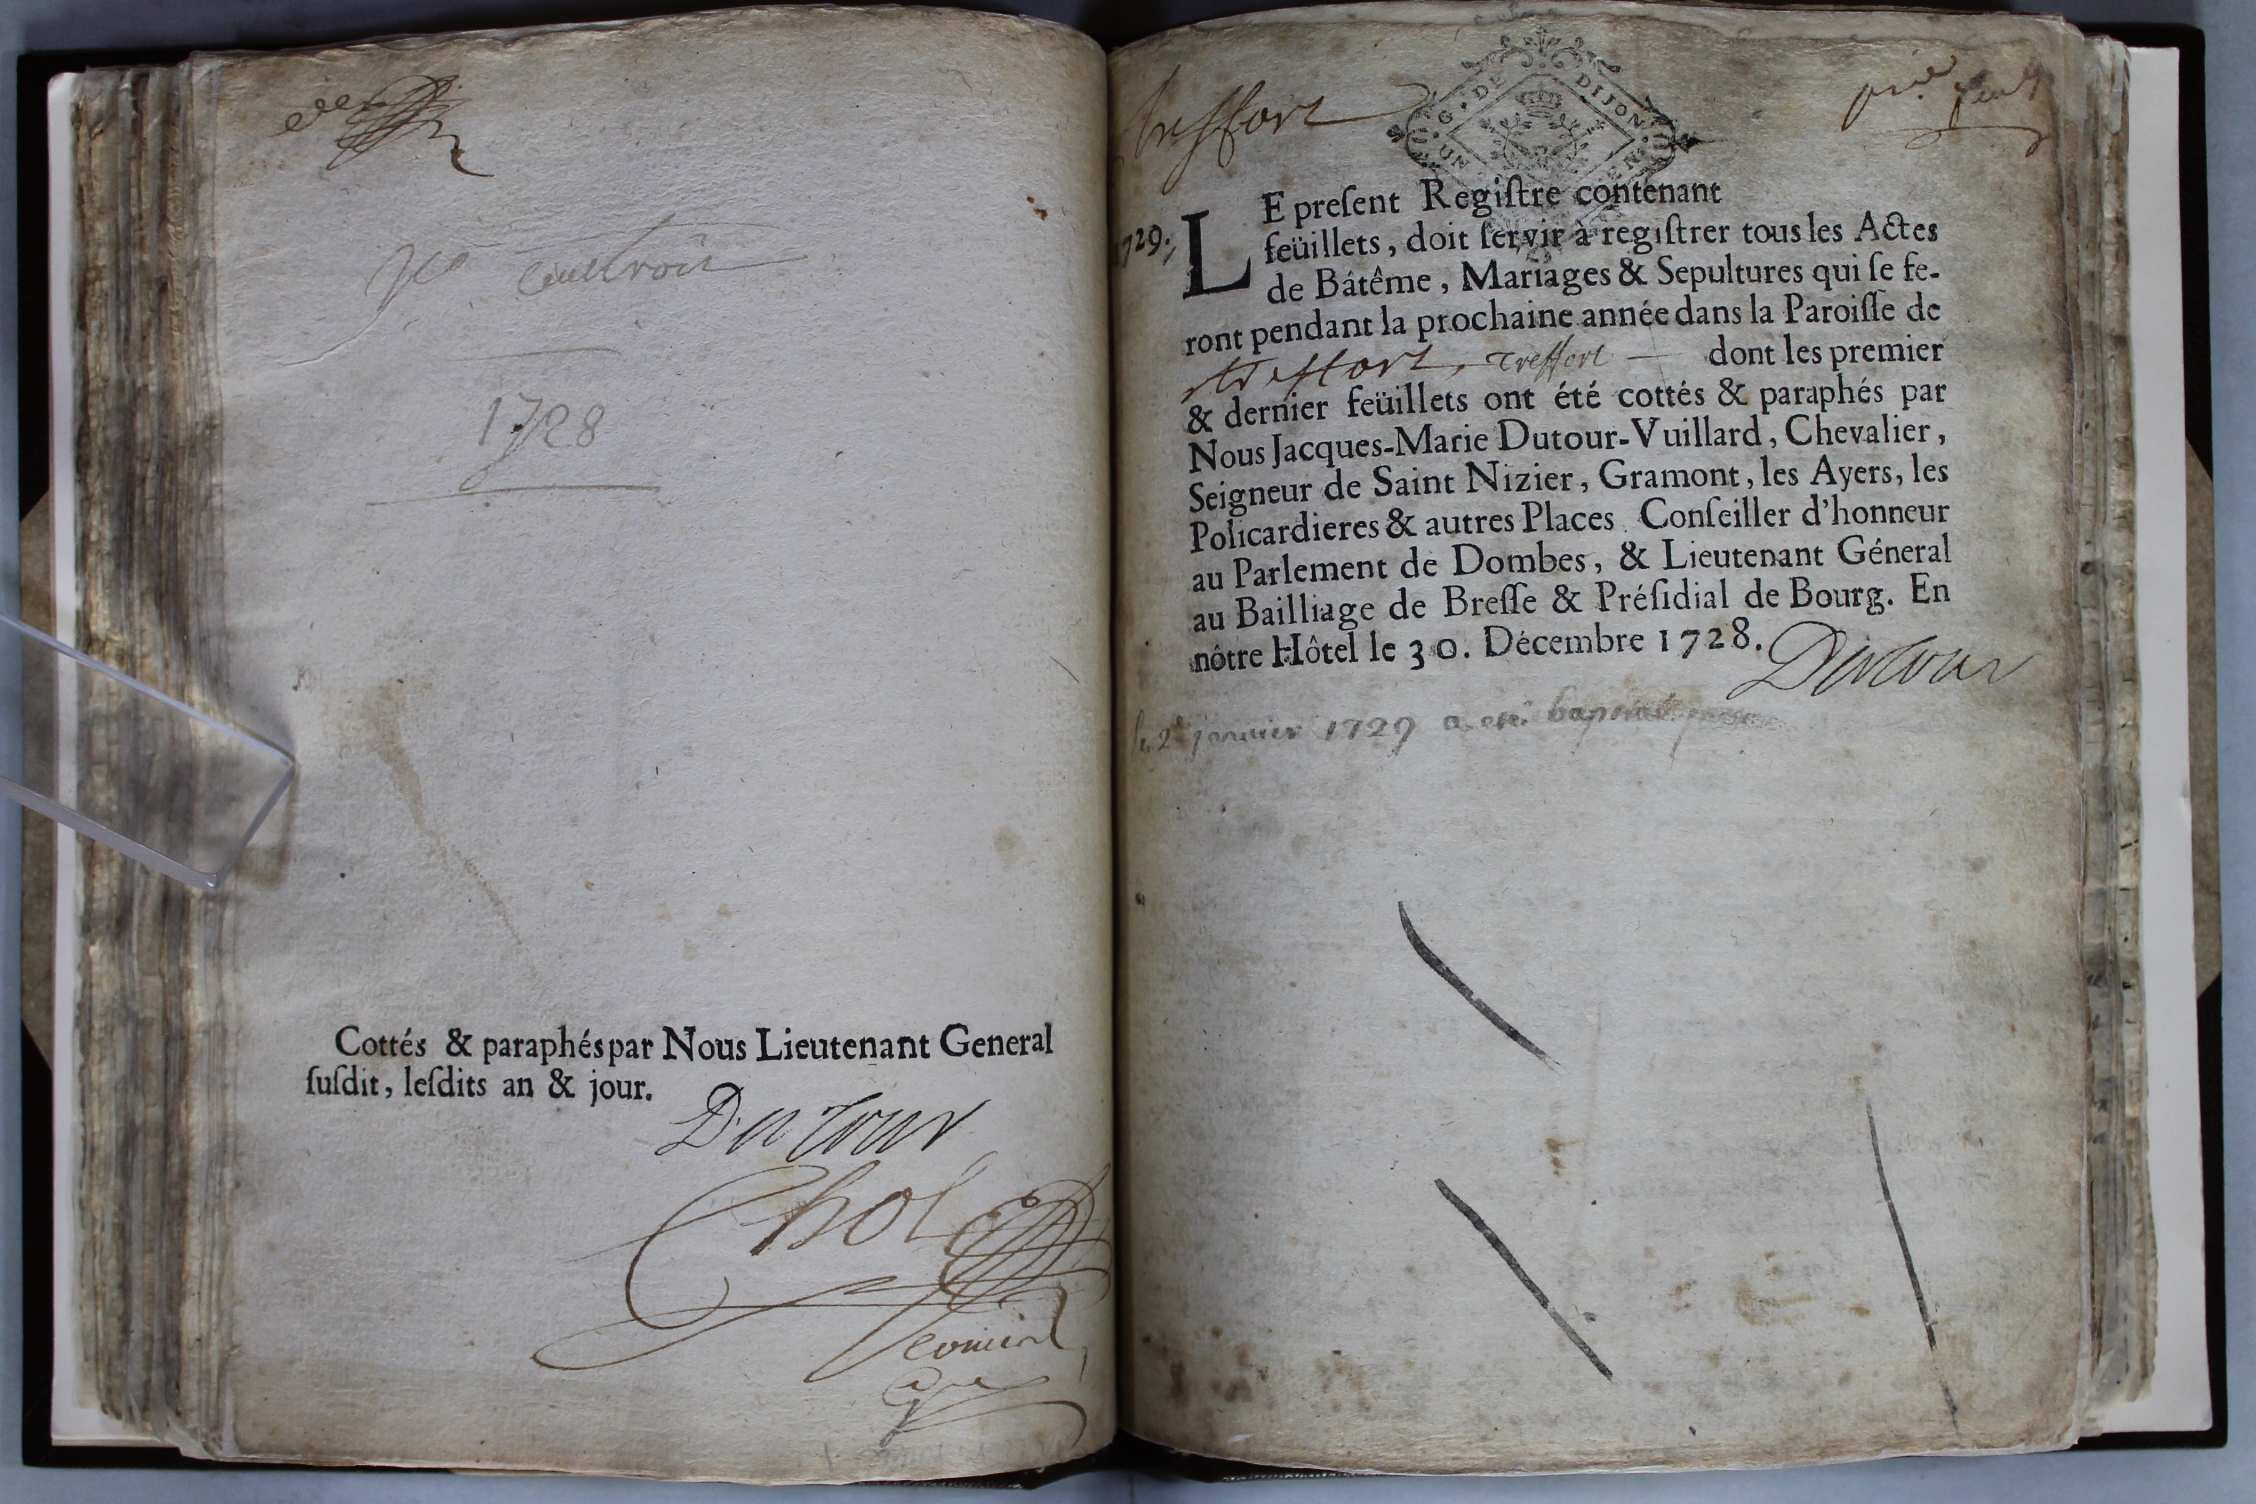 1728
Cottés & paraphés par Nous Lieutenant General
ſuſdit, leſdits an & jour.
Dutour
Chol
treffort
G. DE DIJON
UN
EN
1729.
LE preſent Regiſtre contenant
feüillets, doit ſervir à regiſtrer tous les Actes
de Bátême, Mariages & Sepultures qui ſe fe-
ront pendant la prochaine année dans la Paroiſſe de
treffort, treffort dont les premier
& dernier feüillets ont été cottés & paraphés par
Nous Jacques-Marie Dutour-Vuillard, Chevalier,
Seigneur de Saint Nizier, Gramont, les Ayers, les
Policardieres & autres Places Conſeiller d'honneur
au Parlement de Dombes, & Lieutenant Géneral
au Bailliage de Breſſe & Préſidial de Bourg. En
nôtre Hôtel le 30. Décembre 1728.
Dutour
janvier 1729 a eté baptisé